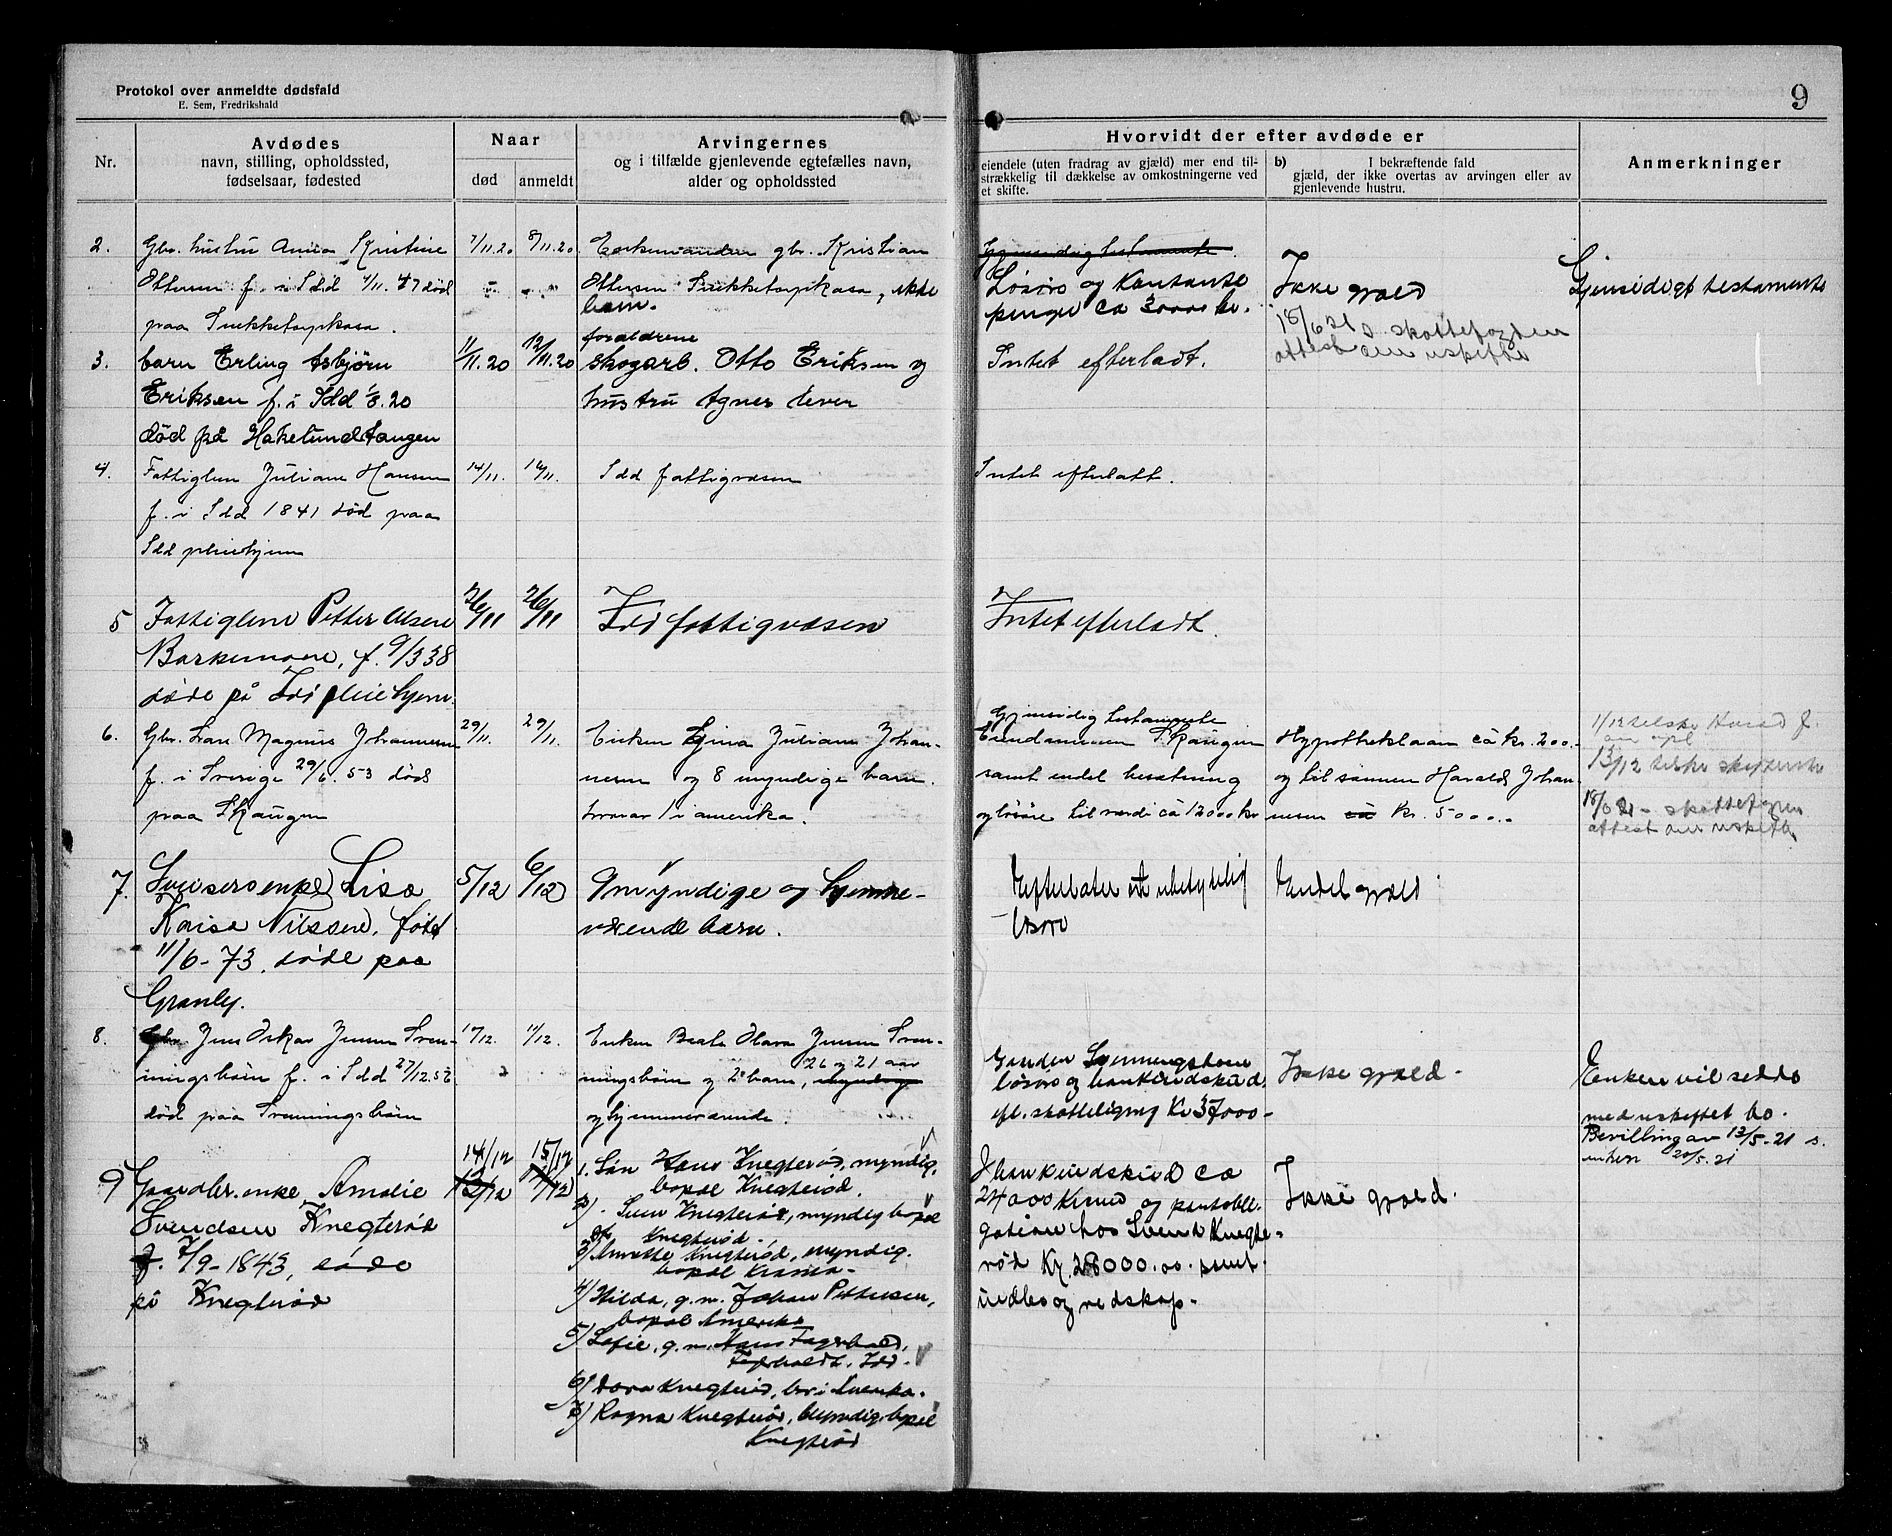 Protokol over anmeldte dødsfald
E. Sem, Fredrikshald
9
Nr.
Avdødes
navn, stilling, opholdssted,
fødselsaar, fødested
Naar
død
anmeldt
Arvingernes
og i tilfælde gjenlevende egtefælles navn,
alder og opholdssted
Hvorvidt der efter avdøde er
eiendele (uten fradrag av gjæld) mer end til-
strækkelig til dækkelse av omkostningerne ved
et skifte.
b) I bekræftende fald
gjæld, der ikke overtas av arvingen eller av
gjenlevende hustru.
Anmerkninger
2. Gbr. hustru Anna Kristine
Ottersen f. i Idd 4/11. 47 död
paa
7/11.20
8/11.20
Enkemanden gbr. Kristian
Ottersen , ikke
barn.
Gjensidig testamente.
Løsøre og kontante
penge ca 3000 kr.
Ikke gjæld
18/6 21 s. skattefogden
attest om uskifte
Gjensidigt testamente
3. barn Erling Asbjörn
Eriksen f. i Idd 1/8.20
död på Hakelundtangen
11/11.20
12/11.20
foraldrene
skogarb. Otto Eriksen og
hustru Agnes lever
Intet efterladt.
4. Fattiglem Juliane Hansen
f. i Idd 1841 död paa
Idd pleiehjem
14/11.
Idd fattigvæsen
Intet efterlatt.
5 Fattiglem Petter Olsen
f. 9/3 38
døde på Idd pleiehjem.
26/11
26/11
Idd fattigvæsen
Intet efterladt.
6. Gbr. Lars Magnus Johannesen
f. i Sverige 29/6. 53 död
paa Skaugen
29/11.
29/11.
Enken Gina Juliane Johan-
nesen og 8 myndige barn.
hvorav 1 i amerika.
Gjensidig testamente
Eiendommen Skaugen
samt endel besætning
og løsøre til værdi ca 12000 kr
Hypotheklaan ca kr. 200.-
og til sønnen Harald Johan-
nesen ca kr. 5000.-
1/12
13/12
18/6 21 - skattefogden
attest om uskifte
7. enke Lisa
Kaisa Nilssen, født
11/6-73, døde paa
Granly.
5/12
6/12
9 myndige og hjemme-
værende barn.
Efterlater et ubetydelig
løsøre
Endel gjæld
8. Gbr. Jens Oskar Jensen Sven-
ningsbøen f. i Idd 27/12.
död paa Svenningsbøen
11/12.
Enken Beate Olava Jensen Sven-
26 og 21 aar
ningsbøen og 2 barn, myndige
og hjemmeværende.
Gaarden Svenningsbøen
løsøre og bankindskud.
eft. skatteligning Kr 37000-
Ikke gjæld.
Enken vil sidde
med uskiftet bo.
Bevilling av 13/5-21 s.
enken 20/5.21
9 Gaardbr. enke Amalie
Svendsen Knegterød
f. 7/9-1843, døde
på Knegterød
14/12
13/12
15/12
14/12
1. Søn Hans Knegterød, myndig,
bopæl Knegterød.
2) Sven Knegterød, myndig bopæl
Knegterød.
3) Annette Knegterød, myndig.
bopæl Krania.
4) Hilda, g.m. Johan Pettersen,
bopæl Amerika
5) Sofie, g.m. Hans Fagerholdt,
Fagerholdt, Idd.
6) Dora Knegterød, bor i Amerika.
7) Ragna Knegterød, Myndig, bopæl
Knegterød
I bankindskud ca
24000 Kroner og pantobli-
gation hos Svend Knegte-
rød Kr. 28000.00. samt
indbo og redskap.
Ikke gjæld.